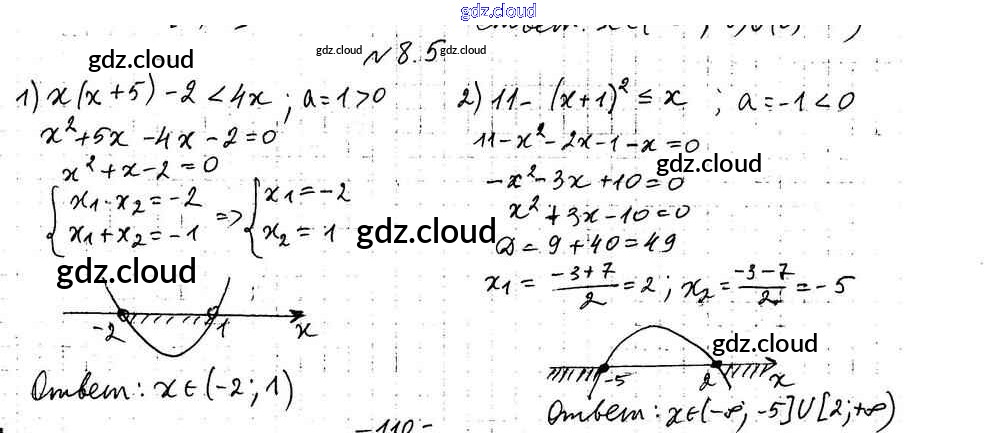 gdz.cloud
№ 8.5
gdz.cloud gdz.cloud
gdz.cloud
1) x(x+5)-2<4x; a=1>0
x²+5x-4x-2=0
x²+x-2=0
{x₁·x₂=-2
x₁+x₂=-1 => {x₁=-2
x₂=1
gdz.cloud
gdz.cloud
-2 1 x
Ответ: x∈(-2;1)
2) 11-(x+1)²≤x; a=-1<0
11-x²-2x-1-x=0
gdz.cloud
-x²-3x+10=0
x²+3x-10=0
D=9+40=49
x₁=\frac{-3+7}{2}=2; x₂=\frac{-3-7}{2}=-5
gdz.cloud
-5 2 x
Ответ: x∈(-∞;-5]∪[2;+∞)
-110-